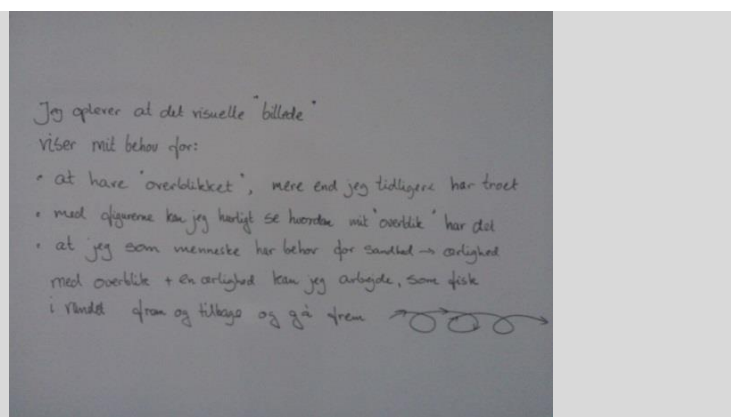 Jeg oplever at det visuelle "billede"
viser mit behov for:
• at have "overblikket", mere end jeg tidligere har troet
• med figurerne kan jeg hurtigt se hvordan mit "overblik" har det
• at jeg som menneske har behov for sandhed → ærlighed
med overblik + en ærlighed kan jeg arbejde, som fisk
i vandet frem og tilbage og gå frem